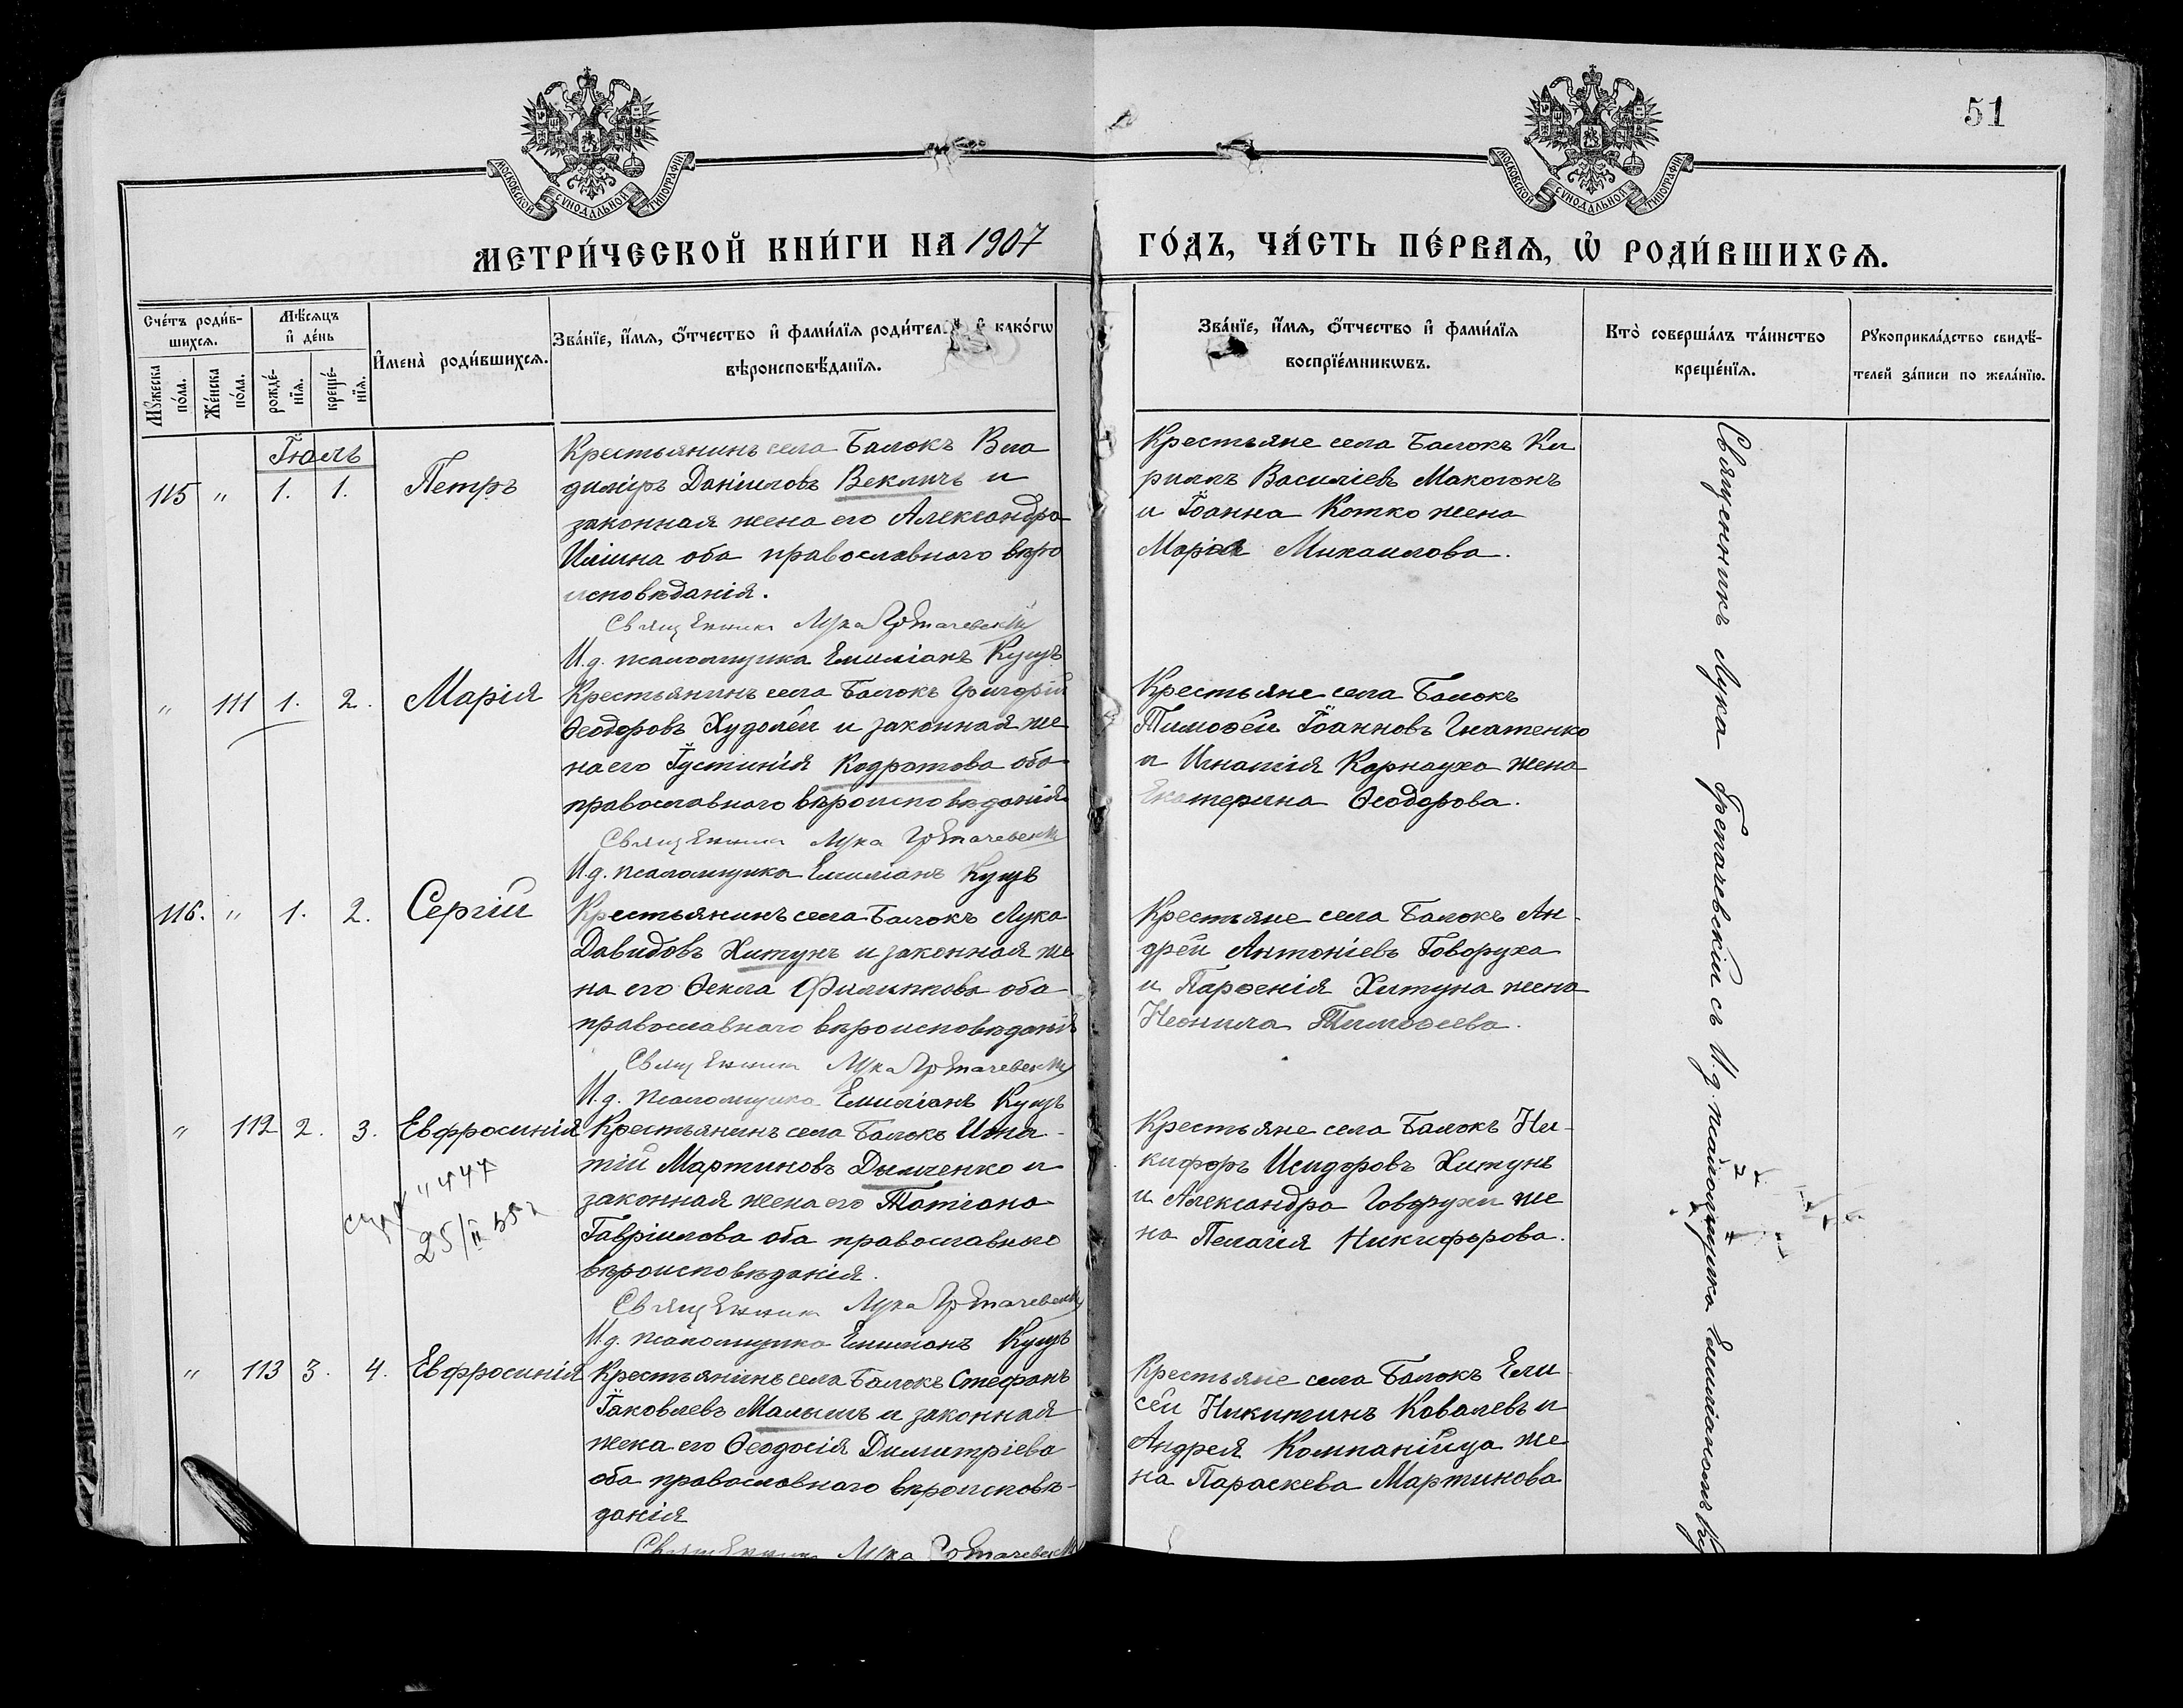 51
МОСКОВСКОЙ СѴНОДАЛЬНОЙ ТИПОГРАФІИ
МОСКОВСКОЙ СѴНОДАЛЬНОЙ ТИПОГРАФІИ
МЕТРИ́ЧЕСКОЙ КНИ́ГИ НА 1907 ГО́ДЪ, ЧА́СТЬ ПЕ́РВАѦ, Ѡ҆ РОДИ́ВШИХСѦ.
Сче́тъ роди́в-
шихсѧ.
Мꙋжеска по́ла.
Же́нска по́ла.
Мѣ́сѧцъ
и҆ де́нь
рожде́-
нїѧ.
креще́-
нїѧ.
И҆мена̀ роди́вшихсѧ.
Зва́нїе, и҆́мѧ, ѻ҆́тчество и҆ фами́лїѧ роди́тел и҆ како́гѡ
вѣроисповѣ́данїѧ.
Зва́нїе, и҆́мѧ, ѻ҆́тчество и҆ фами́лїѧ
воспрїе́мникѡвъ.
Кто̀ соверша́лъ та́инство
креще́нїѧ.
Рꙋкоприкла́дство свидѣ́-
телей за́писи по жела́нїю.
Іюль
115 " 1. 1. Петръ
Крестьянинъ села Балокъ Вла
диміръ Даніиловъ Векличъ и
законная жена его Александра
Иліина оба православнаго вѣро
исповѣданія.
Священникъ Лука Гретачевскій
И.д. псаломщика Емиліанъ Кущъ
Крестьяне села Балокъ Ки
риллъ Василіевъ Макогонъ
и Іоанна Котко жена
Марія Михаилова.
" 111 1. 2. Марія
Крестьянинъ села Балокъ Григорій
Ѳеодоровъ Худолѣй и законная же
на его Іустинія Кодратова оба
православнаго вѣроисповѣданія
Священникъ Лука Гретачевскій
И.д. псаломщика Емиліанъ Кущъ
Крестьяне села Балокъ
Тимоѳей Іоанновъ Игнатенко
и Игнатія Карнауха жена
Екатерина Ѳеодорова.
116. " 1. 2. Сергій
Крестьянинъ села Балокъ Лука
Давидовъ Хитунъ и законная же
на его Ѳекла Филиппова оба
православнаго вѣроисповѣданія
Священникъ Лука Гретачевскій
И.д. псаломщика Емиліанъ Кущъ
Крестьяне села Балокъ Ан-
дрей Антоніевъ Говоруха
и Парѳенія Хитуна жена
Неонила Тимоѳеева.
" 112 2. 3. Евфросинія
447
25/II 55 г
Крестьянинъ села Балокъ Игна-
тій Мартиновъ Дымченко и
законная жена его Татіана
Гавріилова оба православнаго
вѣроисповѣданія.
Священникъ Лука Гретачевскій
И.д. псаломщика Емиліанъ Кущъ
Крестьяне села Балокъ Ни-
кифоръ Исидоровъ Хитунъ
и Александра Говорухи же
на Пелагія Никифорова.
" 113 3. 4. Евфросинія
Крестьянинъ села Балокъ Стефанъ
Іаковлевъ Малышъ и законная
жена его Ѳеодосія Димитріева
оба православнаго вѣроисповѣ-
данія
Священникъ Лука Гретачевскій
Крестьяне села Балокъ Ели
сей Никитинъ Ковалевъ и
Андрея Компанійца же
на Параскева Мартинова
Священникъ Лука Гретачевскій съ И.д. псаломщика Емиліаномъ